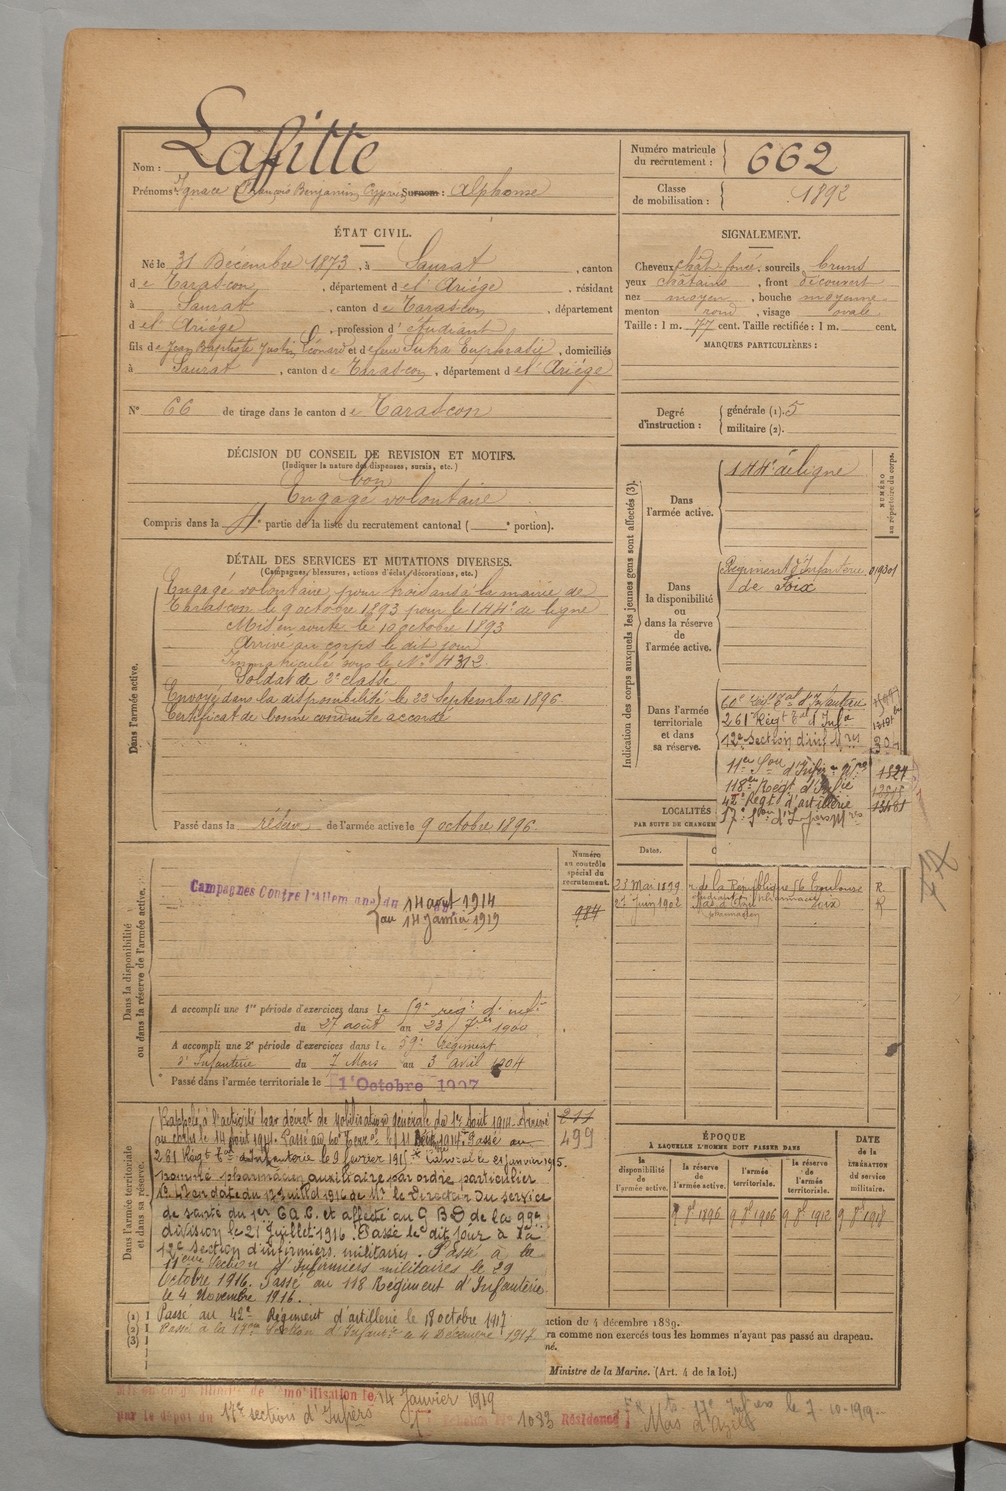 Nom : Laffitte
Prénoms : Ignace François Benjamin Cyprien Surnom : Alphonse
Numéro matricule du recrutement : 662
Classe de mobilisation : 1892
ÉTAT CIVIL.
Né le 31 Décembre 1873, à Saurat, canton
de Tarascon, département de l'Ariége, résidant
à Saurat, canton de Tarascon, département
de l'Ariége, profession d'étudiant
fils de Jean Baptiste Justin Léonard et de feue Sutra Euphrasie, domiciliés
à Saurat, canton de Tarascon, département de l'Ariége
N° 66 de tirage dans le canton de Tarascon
SIGNALEMENT.
Cheveux chât. foncé, sourcils bruns
yeux châtains, front découvert
nez moyen, bouche moyenne
menton rond, visage ovale
Taille : 1 m. 77 cent. Taille rectifiée : 1 m. cent.
MARQUES PARTICULIÈRES :
Degré d'instruction : générale (1). 5
militaire (2).
DÉCISION DU CONSEIL DE REVISION ET MOTIFS.
(Indiquer la nature des dispenses, sursis, etc.)
bon
Engagé volontaire
Compris dans la 4e partie de la liste du recrutement cantonal ( e portion).
DÉTAIL DES SERVICES ET MUTATIONS DIVERSES.
(Campagnes, blessures, actions d'éclat, décorations, etc.)
Dans l'armée active.
Engagé volontaire pour trois ans à la mairie de
Tarascon le 9 octobre 1893 pour le 144e de ligne
Mis en route le 10 octobre 1893
Arrivé au corps le dit jour
Immatriculé sous le N° 4312
Soldat de 2e classe
Envoyé dans la disponibilité le 23 Septembre 1896
Certificat de bonne conduite accordé
Passé dans la réserve de l'armée active le 9 octobre 1896.
Indication des corps auxquels les jeunes gens sont affectés (3).
NUMÉRO au répertoire du corps.
Dans l'armée active.
144e de ligne
Dans la disponibilité ou dans la réserve de l'armée active.
Régiment d'Infanterie 01901
de Foix
Dans l'armée territoriale et dans sa réserve.
60e Régt Tal d'Infanterie
261e Régt Tal d'Infie
12e Section d'inf. Mres
11e Son d'Infirs Mres 1824
118e Régt d'Infie
42e Régt d'artillerie
17e Son d'Infirs Mres
LOCALITÉS
PAR SUITE DE CHANGEM
Dates.
23 Mai 1899 r. de la République 56 Toulouse R.
27 Juin 1902 Mas d'Azil Foix R
77
Dans la disponibilité ou dans la réserve de l'armée active.
Numéro au contrôle spécial du recrutement.
984
Campagnes Contre l'Allemagne du 14 août 1914
au 14 Janvier 1919
A accompli une 1re période d'exercices dans le 59e régt d'infie
du 27 août au 23 7bre 1900
A accompli une 2e période d'exercices dans le 59e Régiment
d'Infanterie du 7 Mars au 3 avril 1904
Passé dans l'armée territoriale le 1er Octobre 1907
Dans l'armée territoriale et dans sa réserve.
211
499
Rappelé à l'activité par décret de mobilisation générale du 1er août 1914. Arrivé
au corps le 14 août 1914. Passé au
261 Régt Tal d'Infanterie le 9 février 1915. Caporal le 21 janvier 1915.
nommé pharmacien auxiliaire par ordre particulier
en date du 12 juillet 1916 de Mr le Directeur du service
de santé du 1er C.A.C. et affecté au G B D de la 99e
division le 21 juillet 1916. Passé le dit jour à la
12e section d'infirmiers militaires. Passé à la
11eme Section d'Infirmiers militaires le 29
Octobre 1916. Passé au 118 Régiment d'Infanterie
le 4 Novembre 1916.
Passé au 42e Régiment d'artillerie le 18 octobre 1917
Passé à la 17me Section d'Infirmiers le 4 Décembre 1917
ÉPOQUE
À LAQUELLE L'HOMME DOIT PASSER DANS
la disponibilité de l'armée active.
la réserve de l'armée active.
l'armée territoriale.
la réserve de l'armée territoriale.
DATE de la LIBÉRATION du service militaire.
9 8bre 1896
9 8bre 1906
9 8bre 1912
9 8bre 1918
(1)
(2)
(3)
ction du 4 décembre 1889.
ra comme non exercés tous les hommes n'ayant pas passé au drapeau.
né.
Ministre de la Marine. (Art. 4 de la loi.)
Mis en congé illimité de démobilisation le 14 Janvier 1919
par le dépôt du 17e section d'Infirs
1083 Résidence
Mas d'Azil
le 7-10-1919.